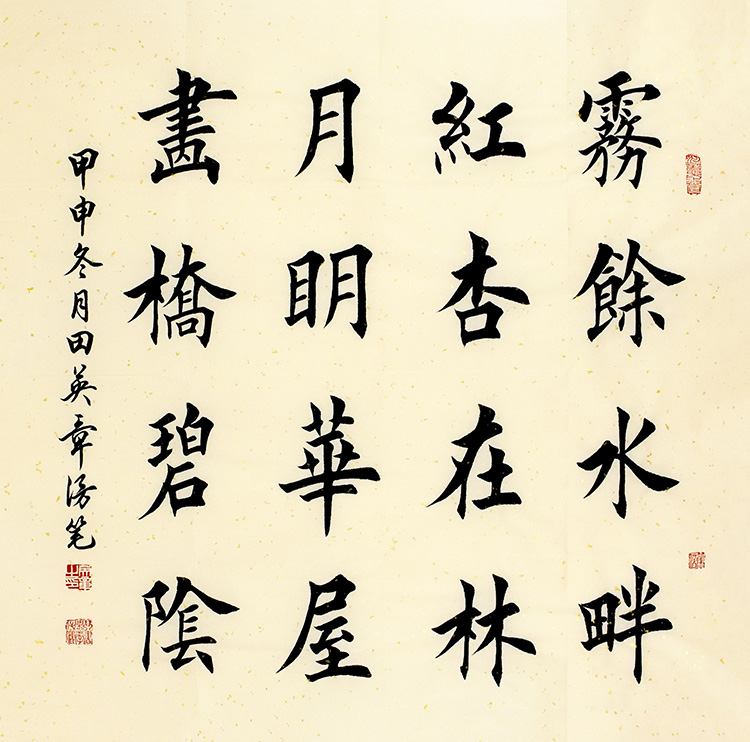 霧餘水畔
紅杏在林
月眀華屋
畵橋碧陰
甲申冬月田英章漫笔